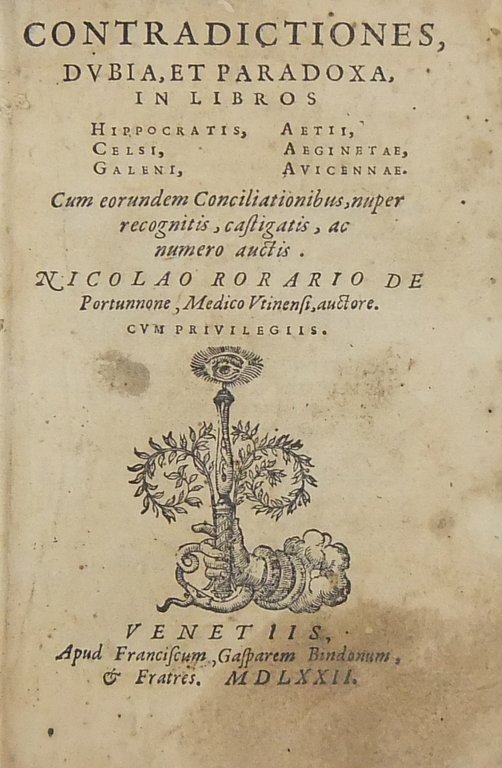 CONTRADICTIONES,
DVBIA, ET PARADOXA,
IN LIBROS
HIPPOCRATIS, AETII,
CELSI, AEGINETAE,
GALENI, AVICENNAE.
Cum eorundem Conciliationibus, nuper
recognitis, caſtigatis, ac
numero auctis.
NICOLAO RORARIO DE
Portunnone, Medico Vtinenſi, auctore.
CVM PRIVILEGIIS.
VENETIIS,
Apud Franciſcum, Gaſparem Bindonum,
& Fratres. MDLXXII.